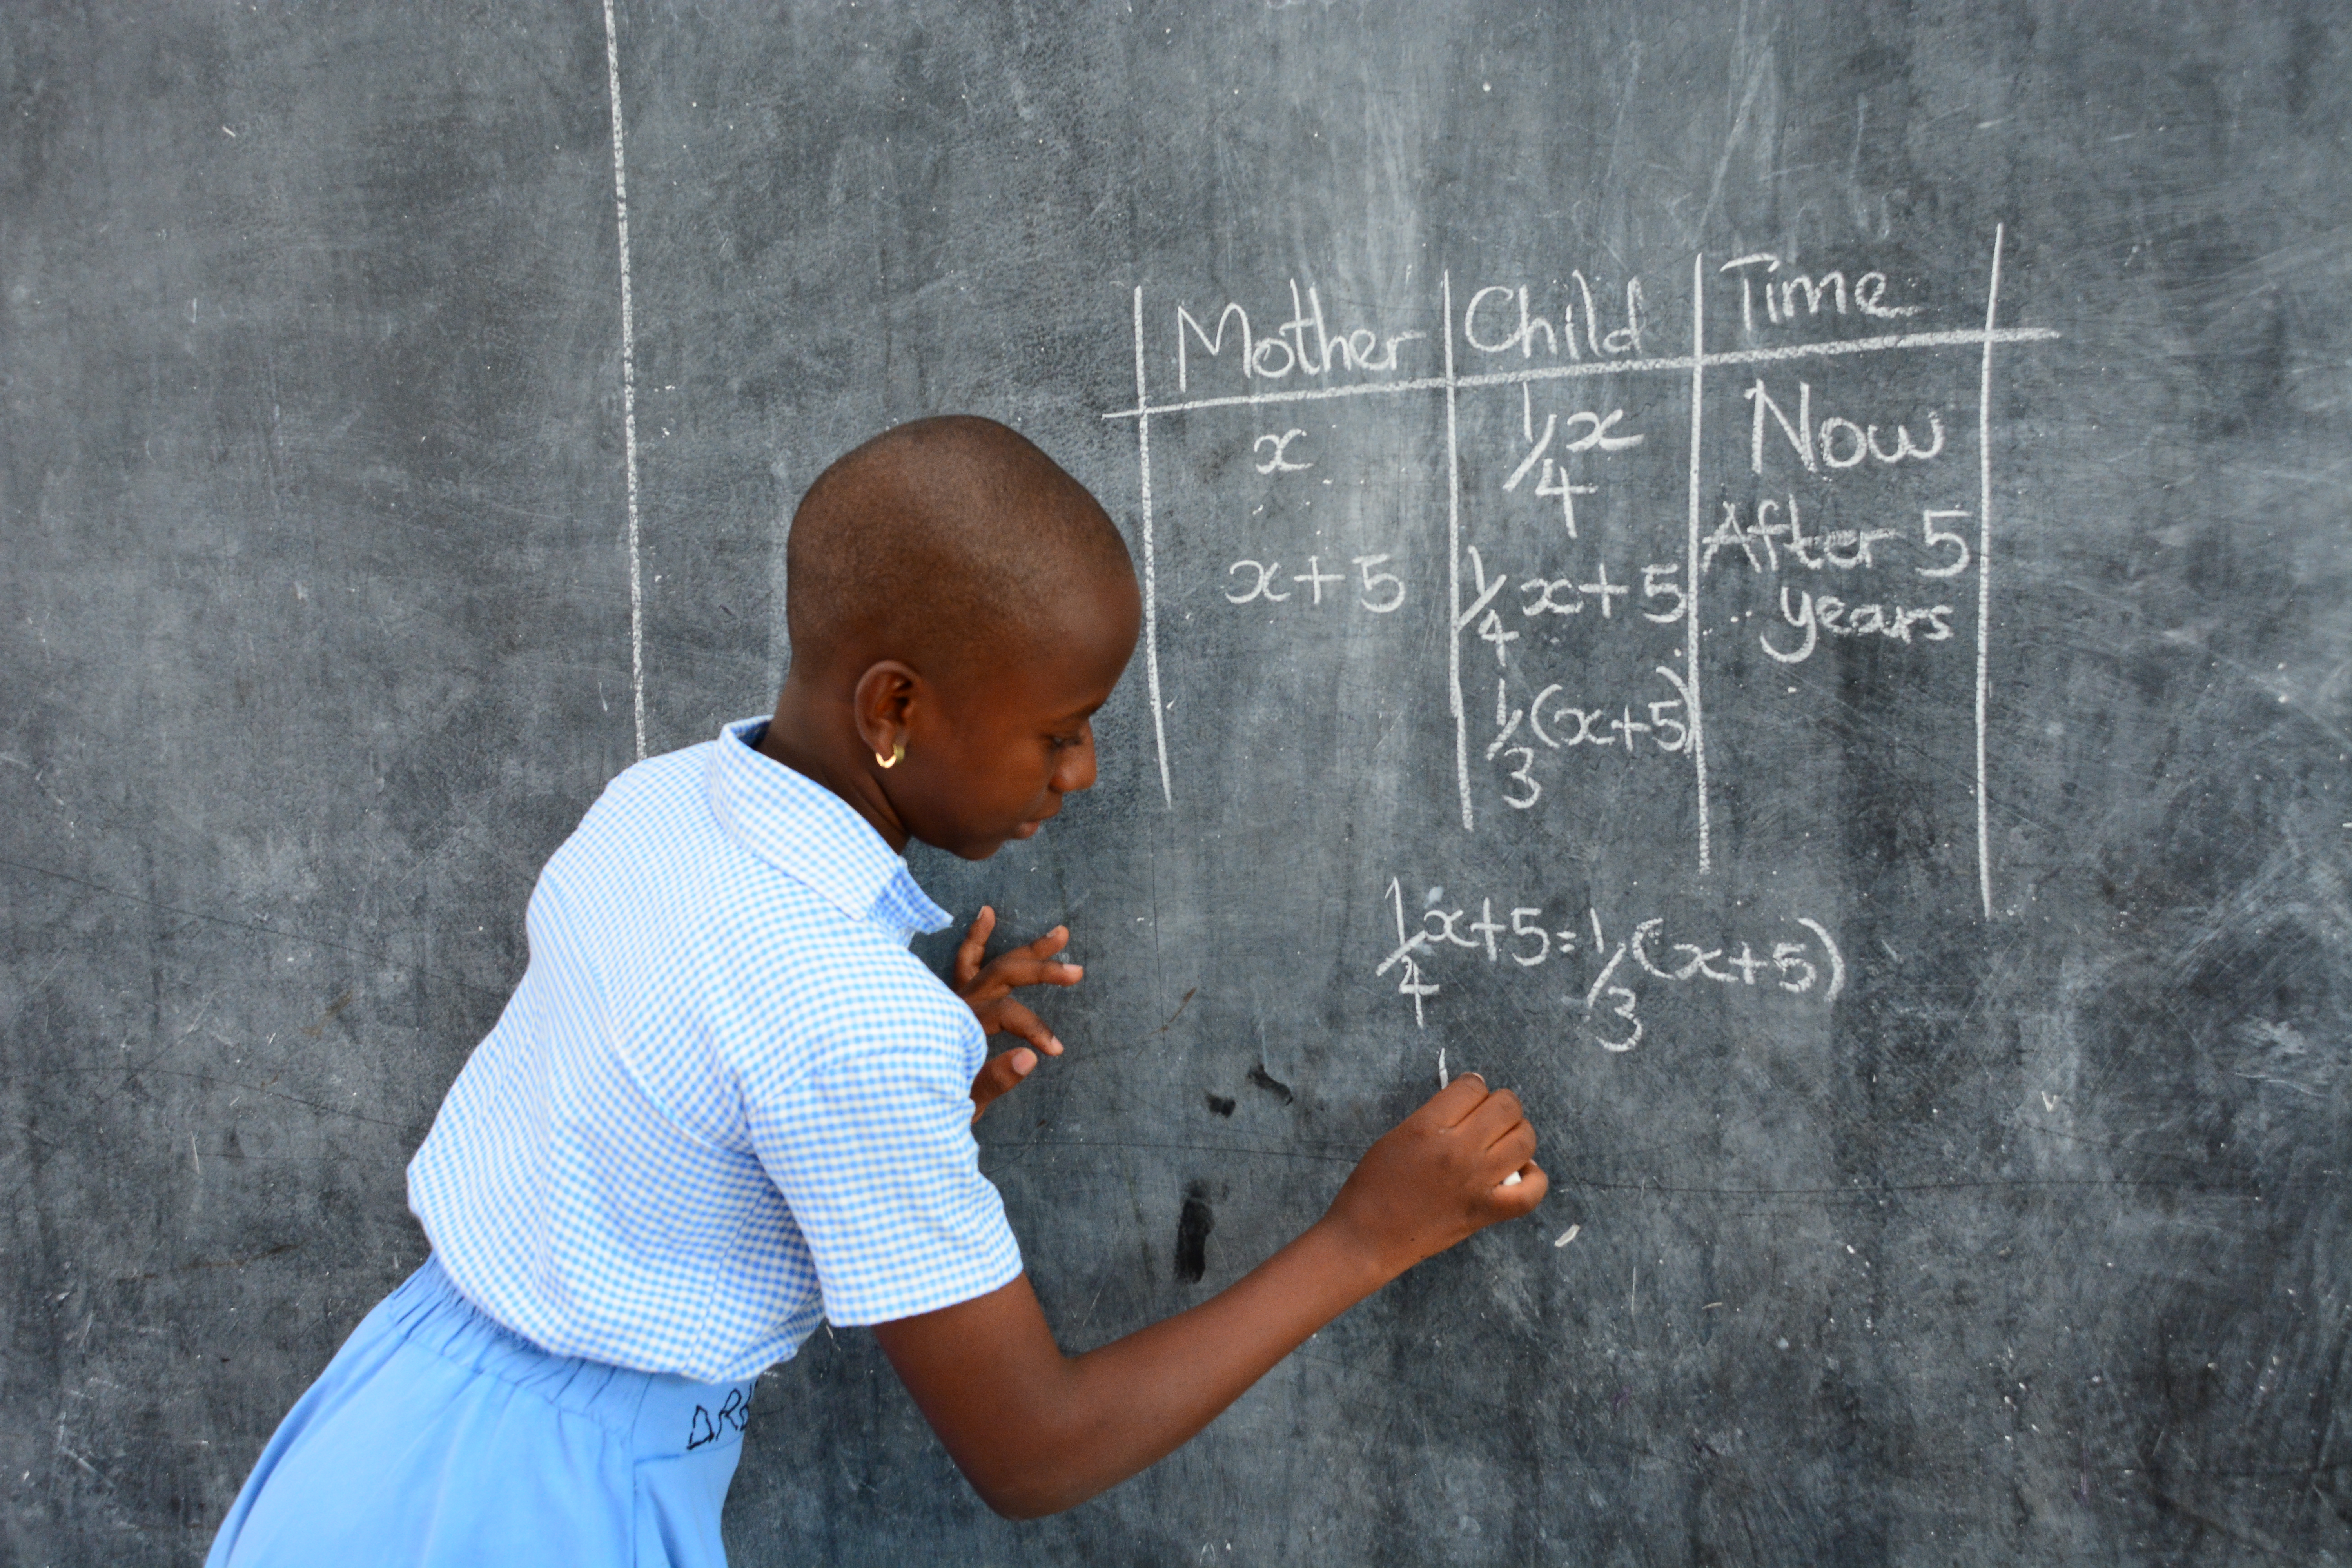 Mother Child Time
x 1/4x Now
x+5 1/4x+5 After 5
years
1/3(x+5)
1/4x+5=1/3(x+5)